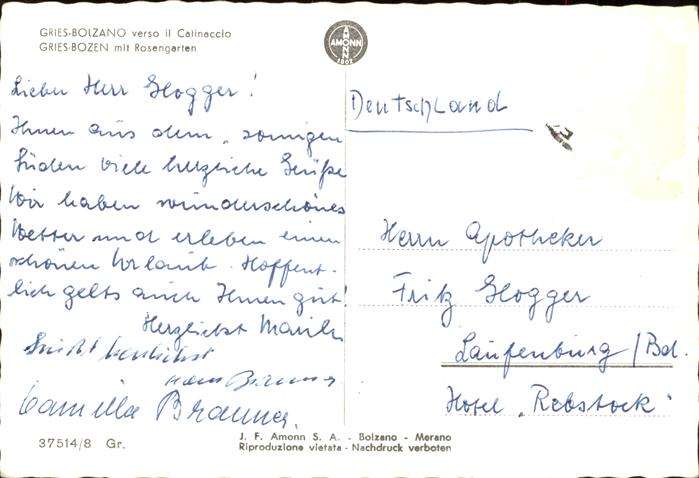 GRIES-BOLZANO verso il Catinaccio
GRIES-BOZEN mit Rosengarten
AMONN
1802
Lieber Herr Glogger!
Ihnen aus dem „sonnigen
Süden viele herzliche Grüße
Wir haben wunderschönes
Wetter und erleben einen
schönen Urlaub. Hoffent-
lich gehts auch Ihnen gut!
Herzlichst
Grüßt herzlichst
Hans Brauner
Camilla Brauner.
Deutschland
Herrn Apotheker
Fritz Glogger
Laufenburg/Bd.
Hotel „Rebstock"
J. F. Amonn S. A. - Bolzano - Merano
37514/8 Gr.
Riproduzione vietata - Nachdruck verboten